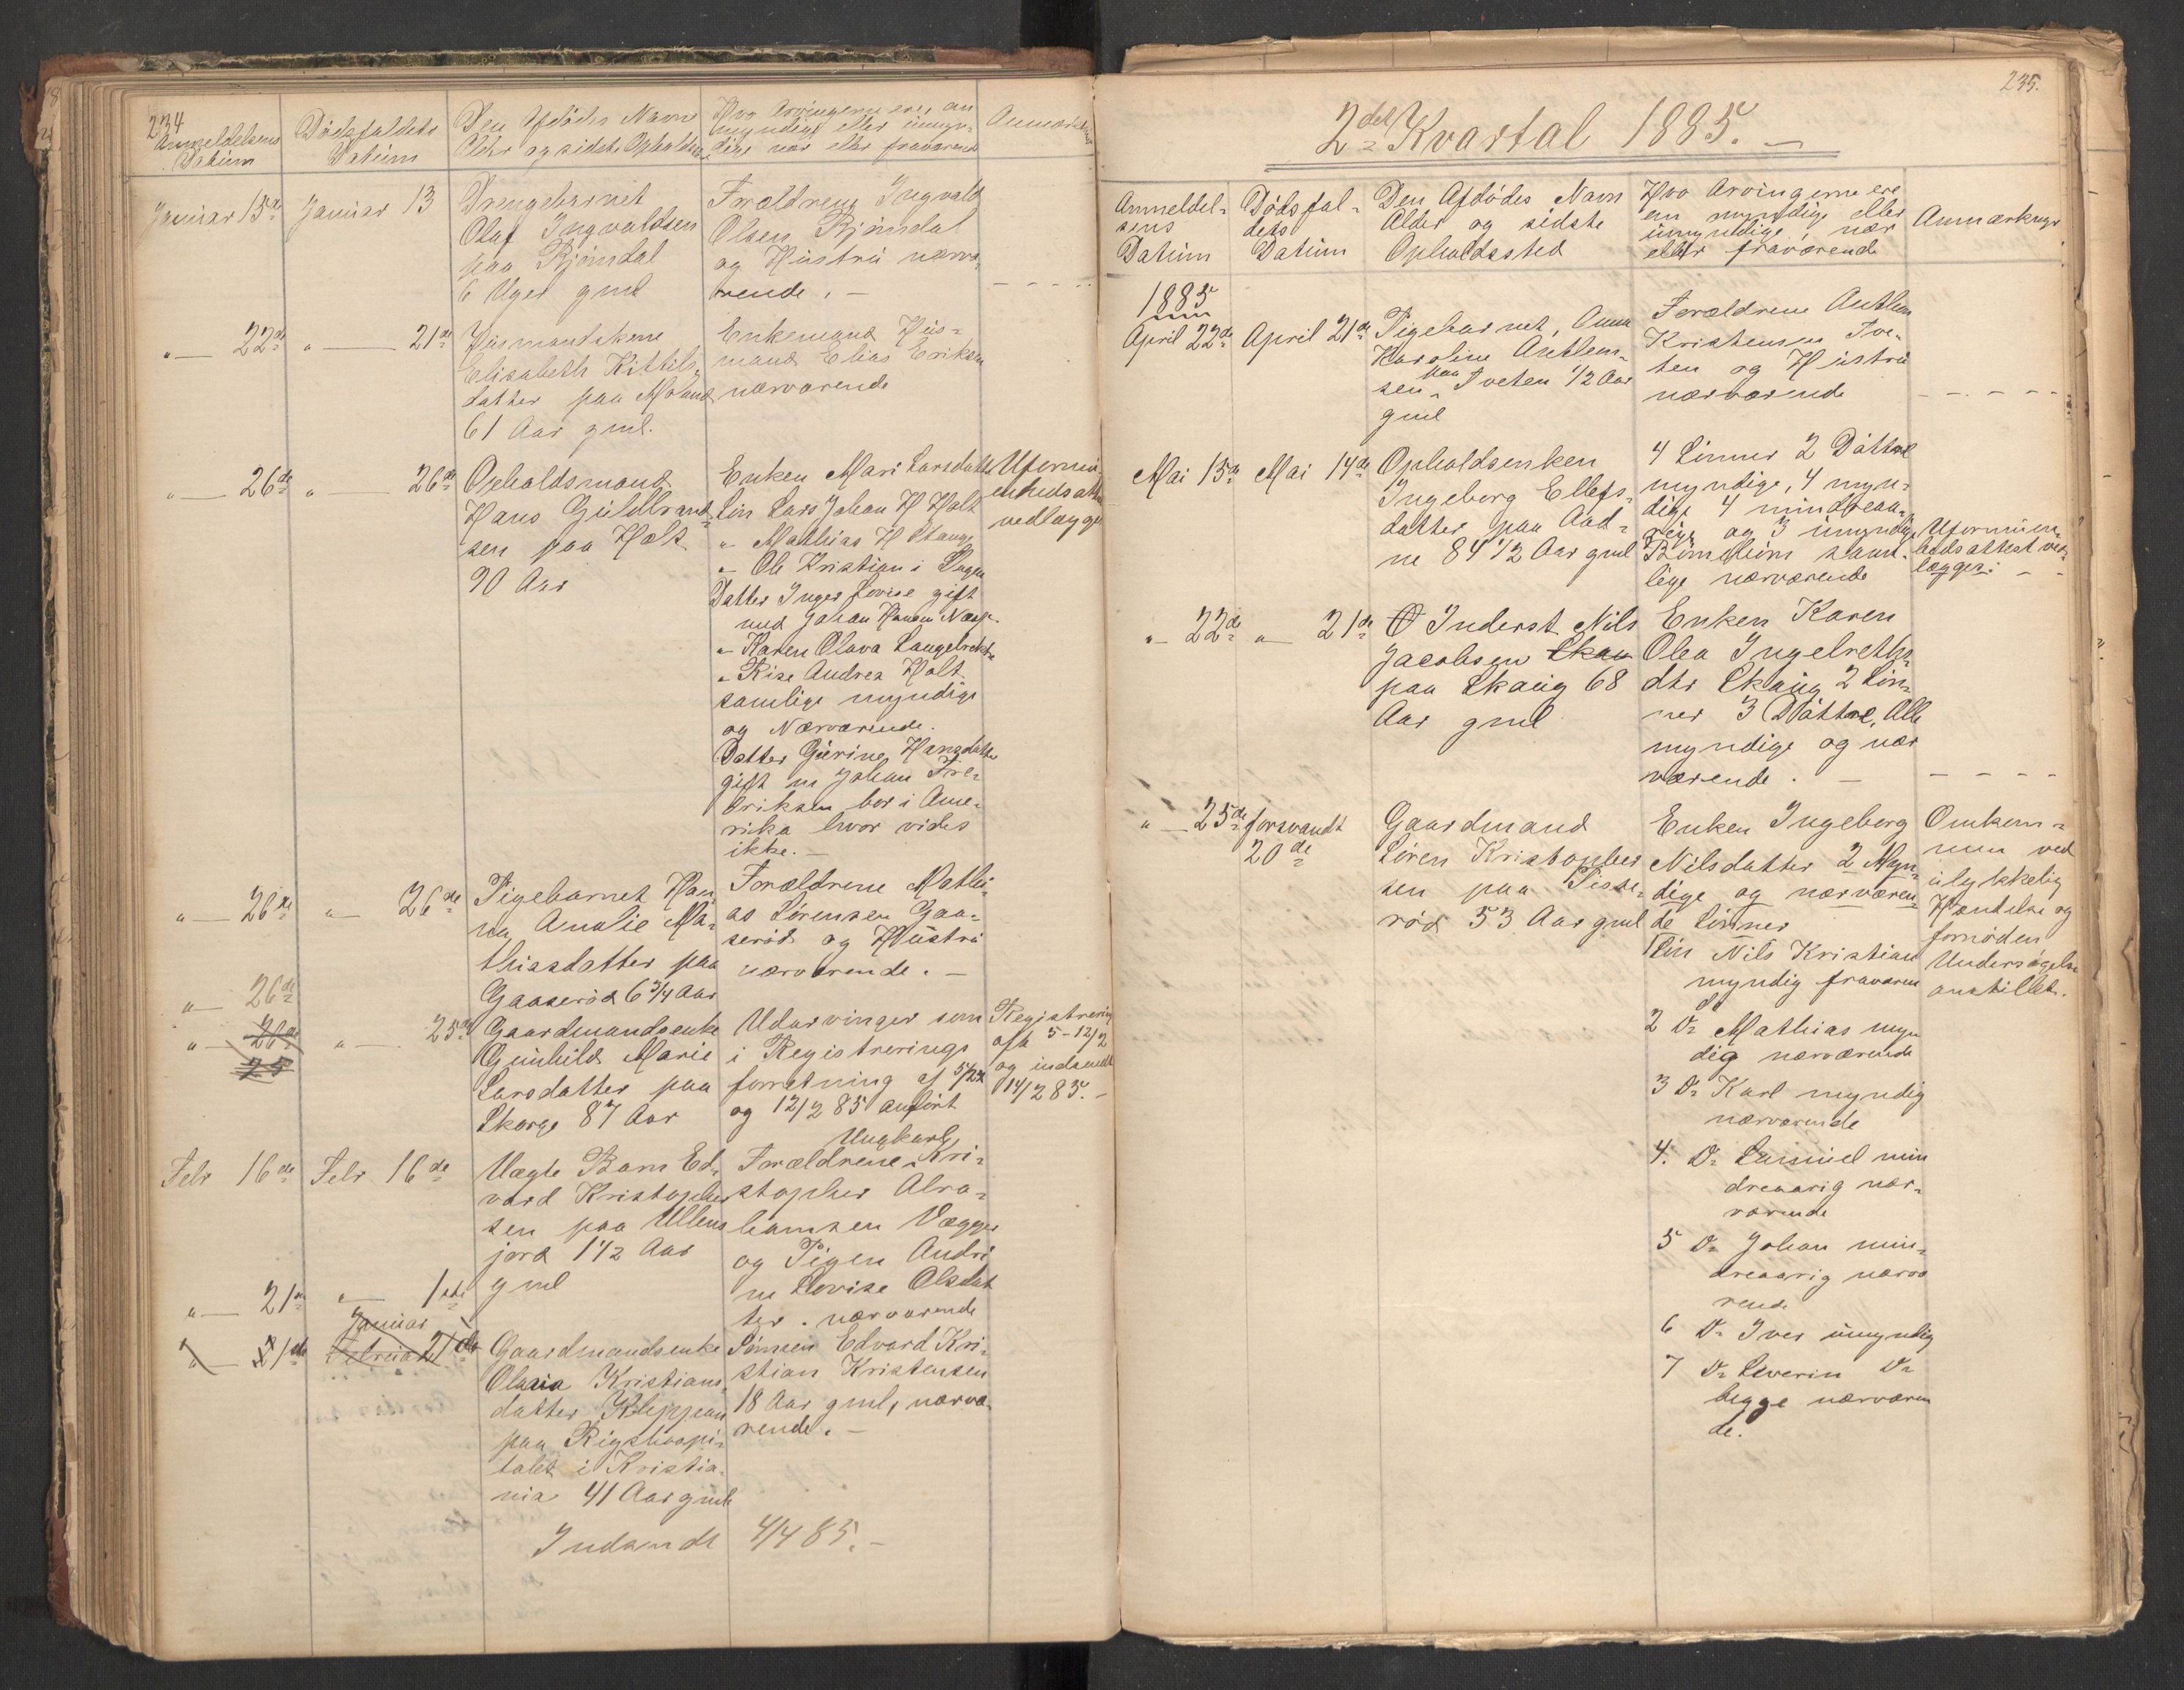 234
Anmeldelsens
Datum
Dødsfaldets
Datum
Den Afdødes Navn
Alder og sidste Opholds
Hvo Arvingerne ere, an
myndige eller umyn-
dige nær eller fraværende
Januar 15de Januar 13
Drengebarnet
Olaf Ingvaldsen
paa Bjørndal
6 Uger gml
Forældrene Ingvald
Olsen Bjørndal
og Hustru nærvæ-
rende. —
" — 22de " — 21de
Husmandskone
Elisabeth Kittils-
datter paa Moland
61 Aar gml.
Enkemand Hus-
mand Elias Eriksen
nærværende
" — 26de " — 26de
Opholdsmand
Hans Guldbrand-
sen paa Holt
90 Aar
Enken Mari Larsdatter
Søn Lars Johan H Holt
" Mathias H Stange
" Ole Kristian i Skogen
Datter Inger Lovise gift
med Johan Hansen Næs
" Karen Olava Langebrekke
" Rise Andrea Holt
samlige myndige
og Nærværende.
Datter Gurine Hansdatter
gift m Johan Fre-
driksen bor i Ame-
rika hvor vides
ikke. —
Uformu-
enheds att
vedlægges
" — 26de " — 26de
Pigebarnet Han-
na Amalie Ma-
thiasdatter paa
Gaaserød 6 3/4 Aar
Forældrene Mathi-
as Sørensen Gaa-
serød og Hustru
nærværende. —
" — 26de
" — 26de " — 25de
25
Gaardmandsenke
Gunhild Marie
Larsdatter paa
Skorge 87 Aar
Udarvinger som
i Registrerings
forretning af 5/2
og 12/2 85 anført
Registrering
afh 5-12/2
og indsendt
14/2 85. —
Febr 16de Febr 16de
Uægte Barn Ed-
vard Kristopher
sen paa Ullens
jord 1 1/2 Aar
gml
Ungkarl
Forældrene Kri-
stopher Abra-
hamsen Vægger
og Pigen Andri
ne Lovise Olsdat
ter. nærværende
" — 21de " — 1ste
Januar
" — 21de Februar 21de
Gaardmandsenke
Olavia Kristians-
datter Kleppan
paa Rigshospi-
talet i Kristia-
nia 41 Aar gml
Sønnen Edvard Kri-
stian Kristensen
18 Aar gml, nærvæ-
rende. —
Indsendt 4/4 85. —
235.
2det Kvartal 1885. —
Anmeldel-
sens
Datum
Dødsfal-
dets
Datum
Den Afdødes Navn
Alder og sidste
Opholdssted
Hvo Arvingerne ere
en myndige eller
umyndige, nær
eller fraværende
Anmærkngr
1885
April 22de April 21de
Pigebarnet, Anna
Karoline Anthem-
sen paa Tveten 1/2 Aar
gml
Forældrene Anthem
Kristensen Tve-
ten og Hustru
nærværende
Mai 15de Mai 14de
Opholdsenken
Ingeborg Ellefs-
datter paa Aad-
ne 84 1/2 Aar gml
4 Sønner 2 Døttre
myndige, 4 myn-
dige 4 mindreaa-
rige og 3 umyndige
Børnebørn sam-
lige nærværende
Uformuen-
hedsattest ved-
lægges. —
" — 22de " — 21de
O Inderst Nils
Jacobsen Skau
paa Skaug 68
Aar gml
Enken Karen
Olea Ingelreths-
dtr Skaug 2 Søn-
ner 3 Døttre, Alle
myndige og nær
værende. —
" — 25de forsvandt
20de
Gaardmand
Søren Kristopher
sen paa Tisse-
rød 53 Aar gml
Enken Ingeborg
Nilsdatter 2 Myn-
dige og nærværen-
de Sønner
1 Søn Nils Kristian
myndig fraværen
de
2 Do Mathias myn
dig nærværende
3 Do Karl myndig
nærværende
4. Do Samuel min
dreaarig nær-
værende
5 Do Johan min-
dreaarig nærvæ
rende
6 Do Iver umyndig
7 Do Severin Do
begge nærværen
de.
Omkom-
men ved
ulykkelig
Hændelse og
fornøden
Undersøgelse
anstillet.